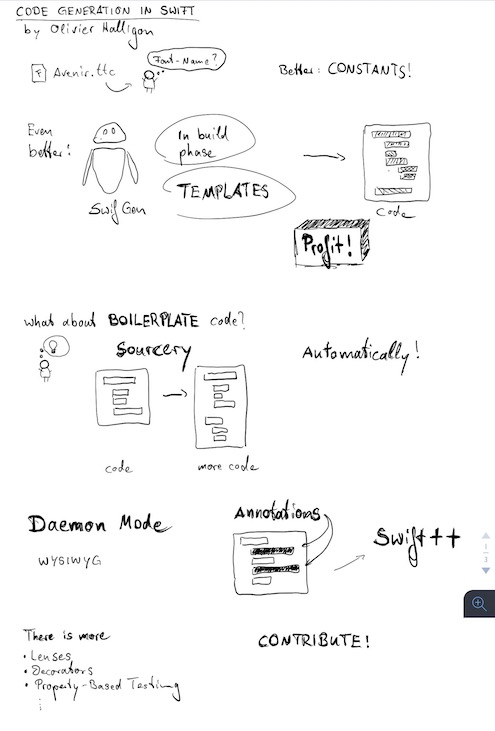 CODE GENERATION IN SWIFT
by Olivier Halligon
F Avenir.ttc
Font-Name?
Better: CONSTANTS!
Even better!
SwiftGen
In build phase
TEMPLATES
Code
Profit!
What about BOILERPLATE code?
Sourcery
Automatically!
code
more code
Daemon Mode
WYSIWYG
Annotations
Swift++
There is more
• Lenses
• Decorators
• Property-Based Testing
CONTRIBUTE!
1
3